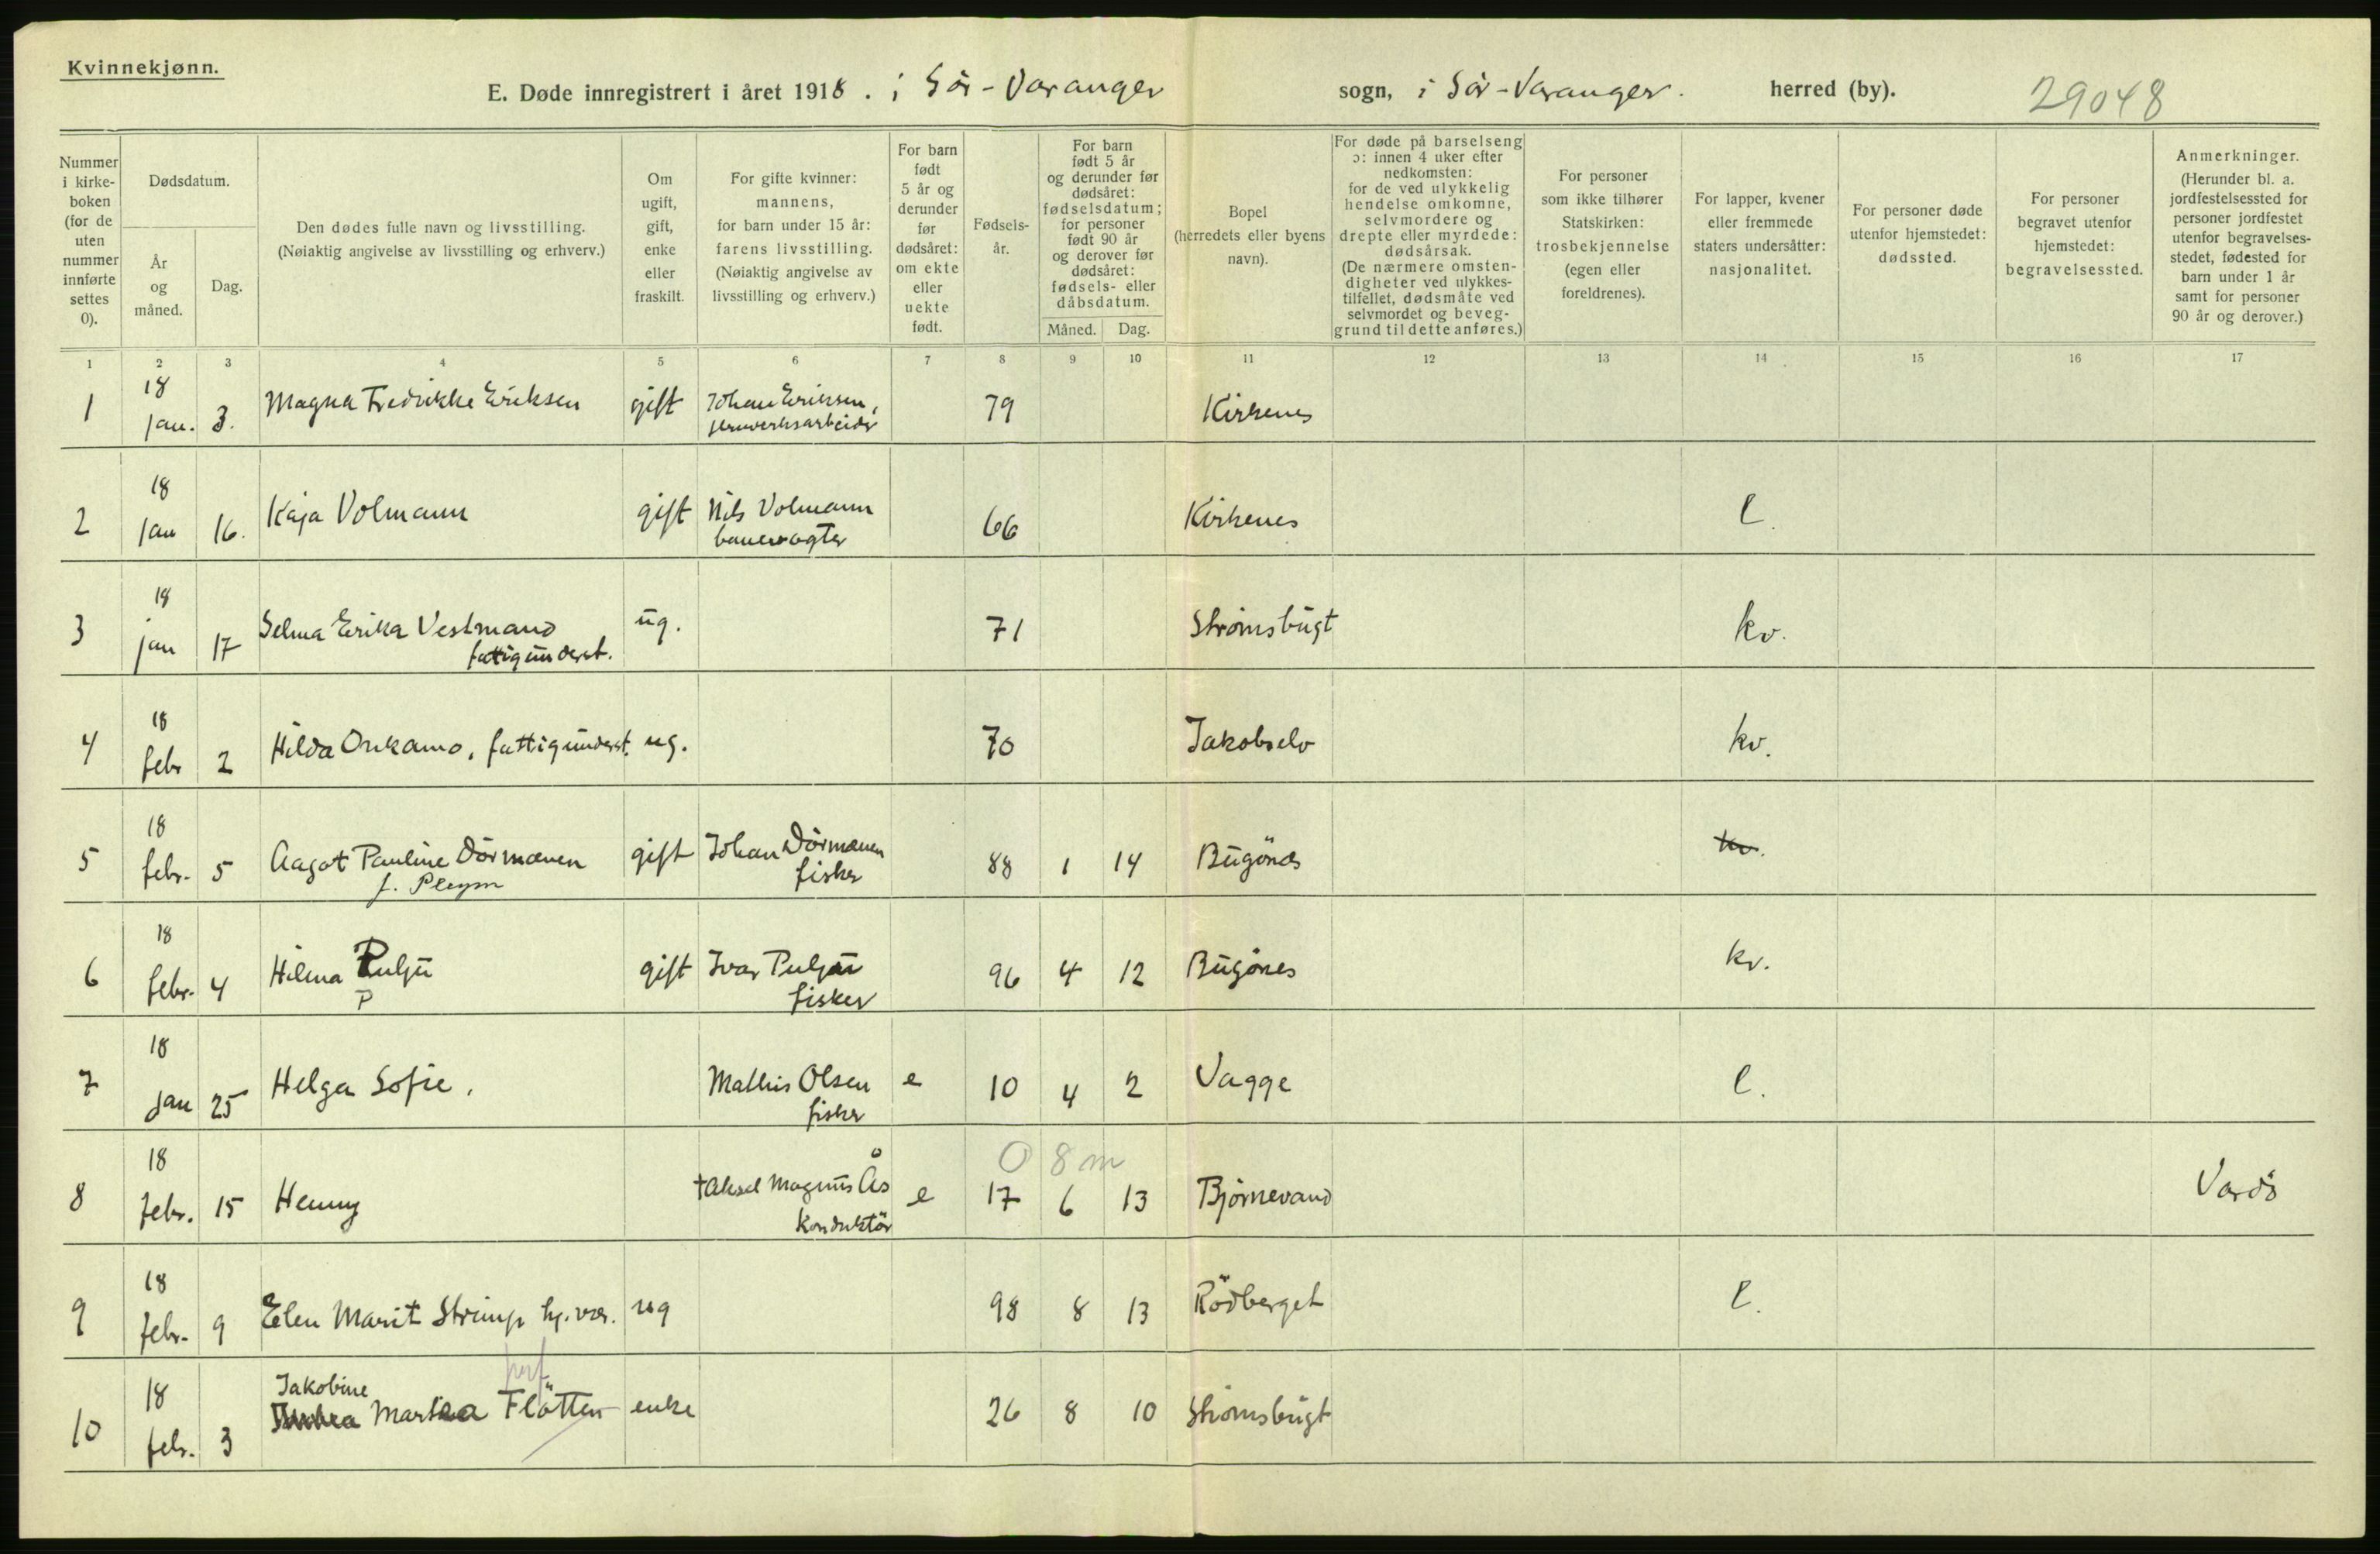 Kvinnekjønn.
E. Døde innregistrert i året 1918. i Sör-Varanger sogn, i Sör-Varanger. herred (by). 29048
Nummer i kirke-boken (for de uten nummer innførte settes 0).
Dødsdatum.
År og måned.
Dag.
Den dødes fulle navn og livsstilling.
(Nøiaktig angivelse av livsstilling og erhverv.)
Om ugift, gift, enke eller fraskilt.
For gifte kvinner: mannens, for barn under 15 år: farens livsstilling. (Nøiaktig angivelse av livsstilling og erhverv.)
For barn født 5 år og derunder før dødsåret: om ekte eller uekte født.
Fødsels-år.
For barn født 5 år og derunder før dødsåret: fødselsdatum; for personer født 90 år og derover før dødsåret: fødsels- eller dåbsdatum.
Måned. Dag.
Bopel (herredets eller byens navn).
For døde på barselseng ɔ: innen 4 uker efter nedkomsten: for de ved ulykkelig hendelse omkomne, selvmordere og drepte eller myrdede: dødsårsak. (De nærmere omsten-digheter ved ulykkes-tilfellet, dødsmåte ved selvmordet og beveg-grund til dette anføres.)
For personer som ikke tilhører Statskirken: trosbekjennelse (egen eller foreldrenes).
For lapper, kvener eller fremmede staters undersåtter: nasjonalitet.
For personer døde utenfor hjemstedet: dødssted.
For personer begravet utenfor hjemstedet: begravelsessted.
Anmerkninger. (Herunder bl. a. jordfestelsessted for personer jordfestet utenfor begravelses-stedet, fødested for barn under 1 år samt for personer 90 år og derover.)
1 2 3 4 5 6 7 8 9 10 11 12 13 14 15 16 17
1 18 Jan. 3. Magna Fredrikke Eriksen gift Johan Eriksen, 79 Kirkenes
2 18 Jan 16. Kaja Volmann gift Nils Volmann banevogter 66 Kirkenes l.
3 18 jan 17 Selma Erika Vestmand fattigunderst. ug. 71 Strömsbugt kv.
4 18 febr 2 Hilda Onkamo, fattigunderst. ug. 70 Jakobselv kv.
5 18 febr. 5 Aagot Pauline Dörmænen f. Pleym gift Johan Dörmænen fisker 88 1 14 Bugönes kv.
6 18 febr. 4 Hilma Pulju P gift Ivar Pulju fisker 96 4 12 Bugönes kv.
7 18 Jan 25 Helga Sofie. Mathis Olsen fisker e 10 4 2 Vagge l.
0 8 m
8 18 febr. 15 Henny †Aksel Magnus Ås konduktör e 17 6 13 Björnevand Vardö
9 18 febr. 9 Elen Marit Strimp hj. vær. ug 98 8 13 Rödberget l.
10 18 febr. 3 Jakobine Flötten enke 26 8 10 Strömsbugt